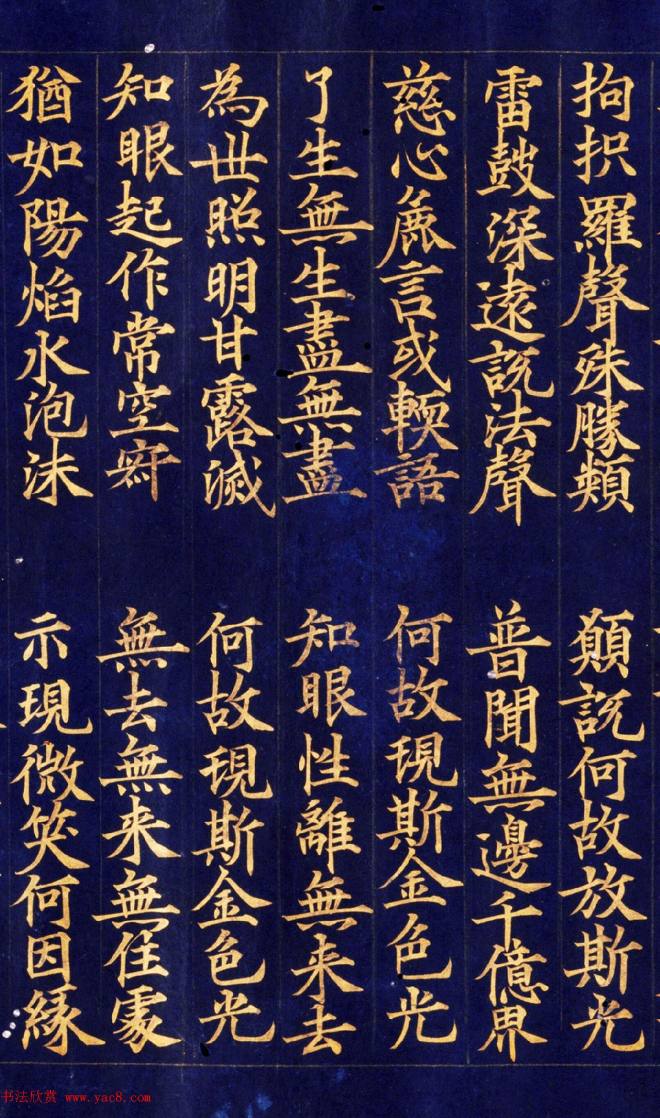 拘抧羅聲殊勝類 願說何故放斯光
雷鼓深遠說法聲 普聞無邊千億界
慈心麁言或軟語 何故現斯金色光
了生無生盡無盡 知眼性離無来去
為世照明甘露滅 何故現斯金色光
知眼起作常空寂 無去無来無住處
猶如陽焰水泡沫 示現微笑何因緣
书法欣赏 www.yac8.com